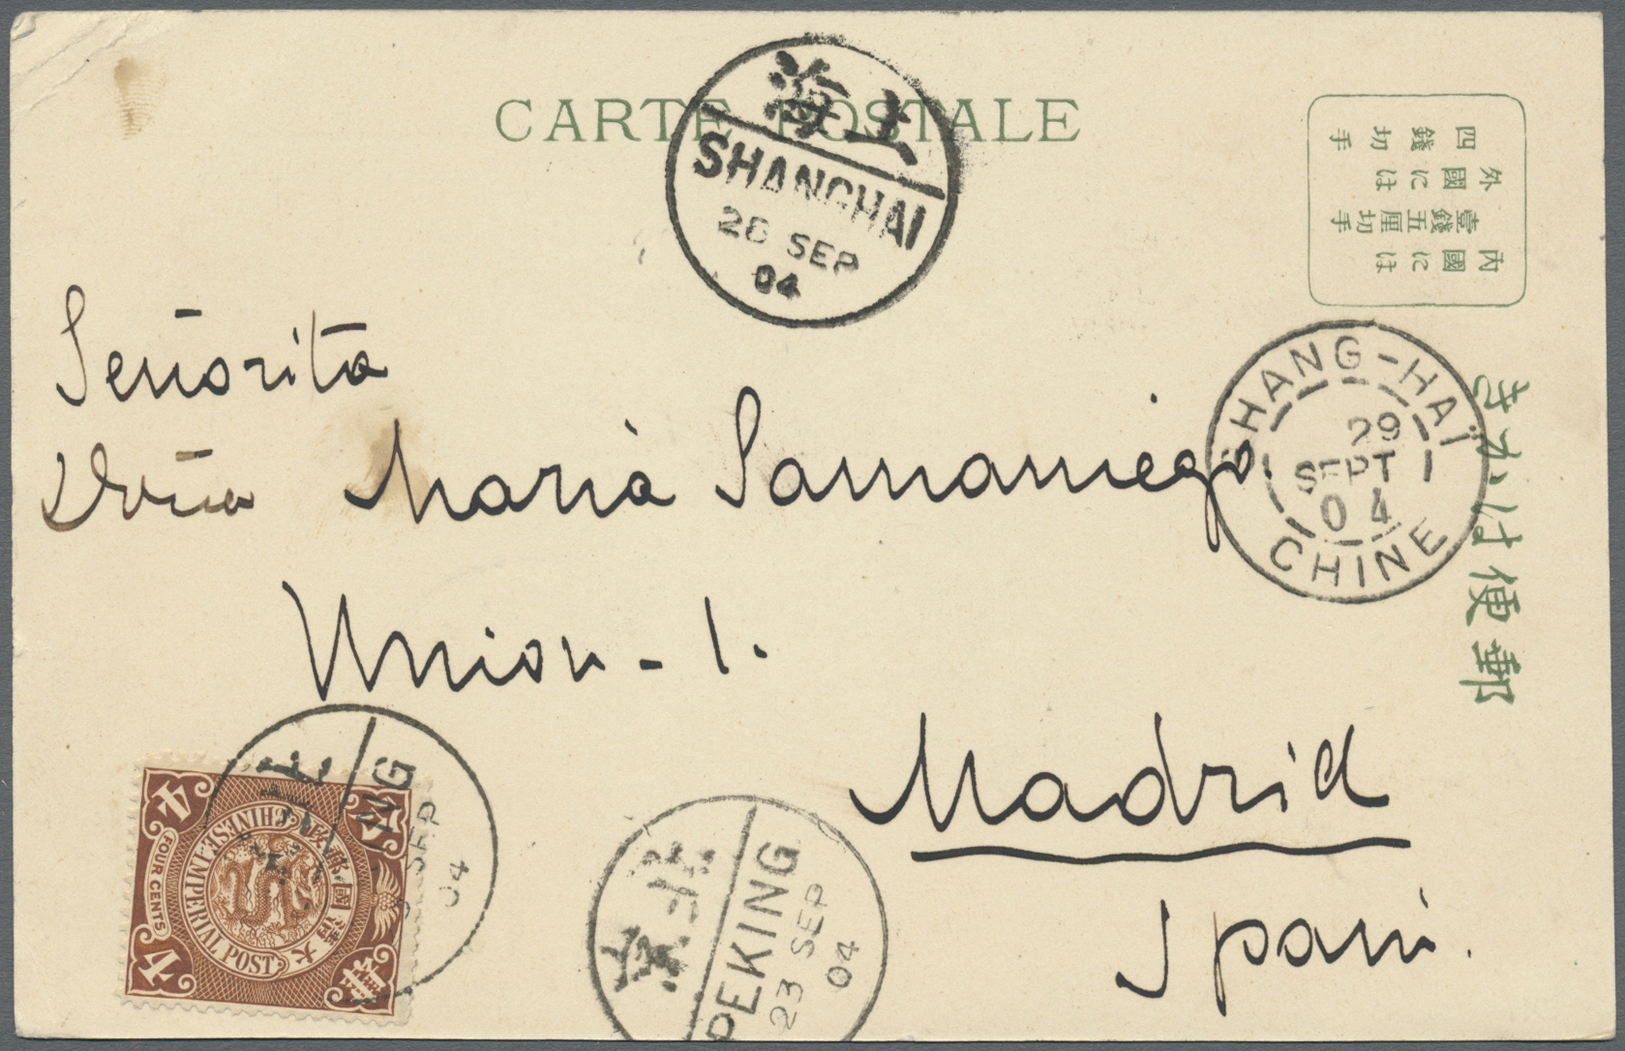 CARTE POSTALE
上海
SHANGHAI
28 SEP
04
外國には
四錢切手
內國には
壹錢五厘切手
郵便はかき
SHANG-HAÏ
29
SEPT
04
CHINE
Señorita
Doña Maria Samaniego
Union - 1.
Madrid
Spain.
北京
PEKING
23 SEP
04
北
KING
SEP
04
CHINESE IMPERIAL POST
大清國郵政
FOUR CENTS
4
4